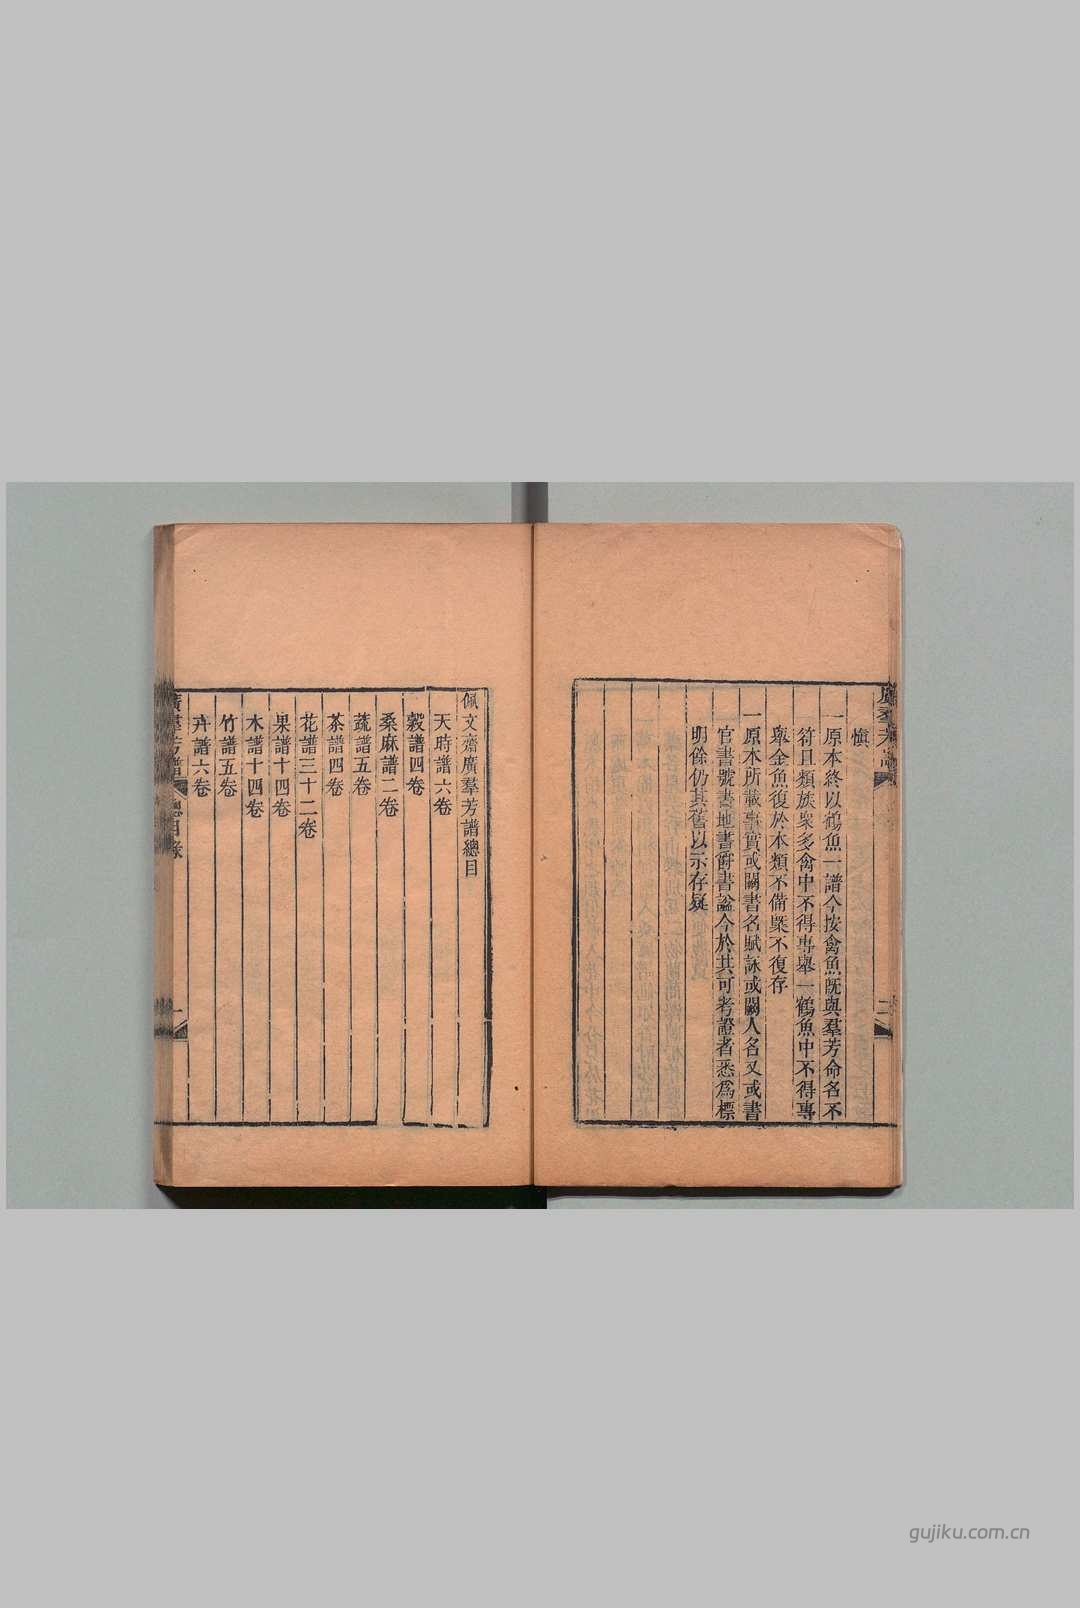 慎
一原本終以鶴魚一譜今按禽魚既與羣芳命名不
符且類族衆多禽中不得專舉一鶴魚中不得專
舉金魚復於本類不備槩不復存
一原本所載事實或闕書名賦詠或闕人名又或書
官書號書地書爵書諡今於其可考證者悉爲標
明餘仍其舊以示存疑
二
佩文齋廣羣芳譜總目
天時譜六卷
穀譜四卷
桑麻譜二卷
蔬譜五卷
茶譜四卷
花譜三十二卷
果譜十四卷
木譜十四卷
竹譜五卷
卉譜六卷
廣羣芳譜 總目錄 一
gujiku.com.cn